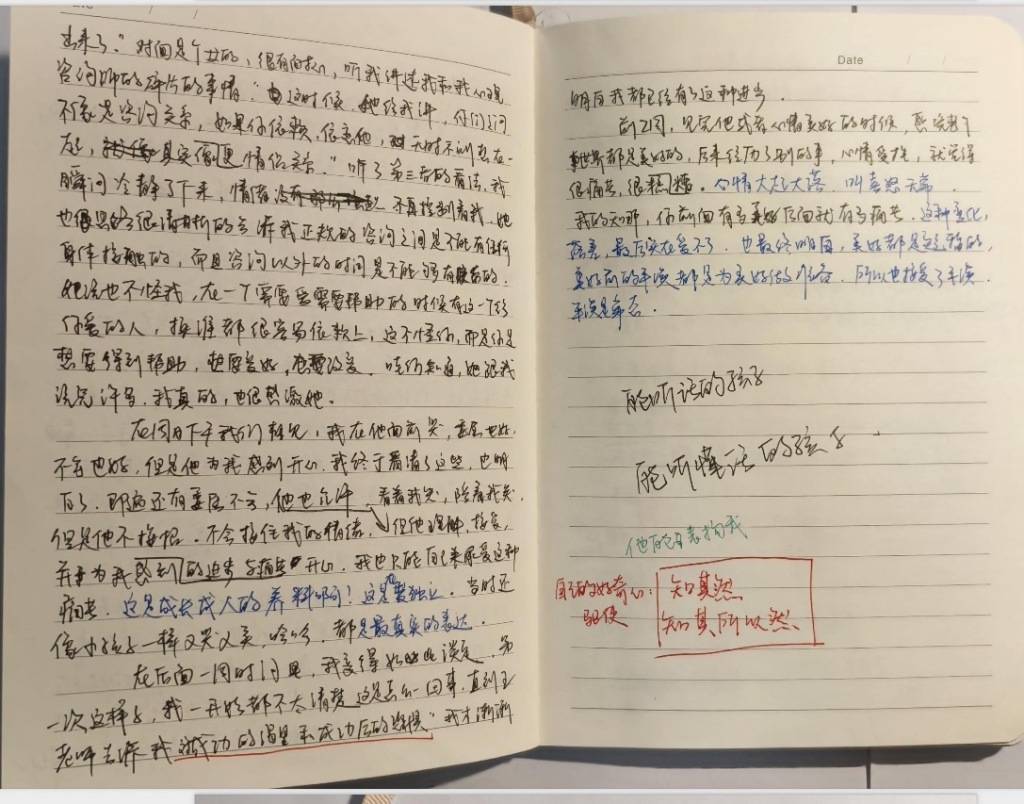 出来了。"时间是个丑的,很有向我,听我讲述我和我心理
咨询师的碎片的事情。"这时候她给我讲,你们之间
不像是咨询关系,如果你依赖,信害他,无时不刻想在一
起,其实倒更情侣关系。"听了第三者的看法,我
瞬间冷静了下来,情绪不再控制着我。她
也很清晰的告诉我正规的咨询之间是不能有任何
身体接触的,而且咨询以外的时间是不能够有的。
她说也不怪我,在一个需要帮助的时候有这一个
你爱的人,换谁都很容易依赖上,这不怪你,而是你是
想要得到帮助,想要变好,想要改变。你知道,她跟我
说完许多,我真的,也很感激她。
在周日下午我们相见,我在他面前哭,委屈也好,
不舍也好,但是他为我感到开心,我终于看清了这些,也明
白了。即使还有委屈不舍,他也允许,看着我哭,陪着我哭
但是他不接握。不会接住我的情绪,但他理解,接受,
并为我感到的进步与痛苦开心。我也只能自己来承受这种
痛苦。这是成长成人的养料啊!这是要独立。当时还
像小孩子一样又哭又笑,哈哈,都是最真实的表达。
在后面一周时间里,我变得如此淡定,第
一次这样子,我一开始都不太清楚这是怎么一回事,直到王
老师告诉我"对成功的渴望和成功后的恐惧"我才渐渐
Date
明白我都已经有了这种进步。
前2周,见完他或者心情美好的时候,感觉整个
世界都是美好的,后来经历了别的事,心情变糟,就觉得
很痛苦,很糟糕。心情大起大落,叫喜怒无常。
我的天哪,你前面有多美好后面就有多痛苦,这种变化,
落差,最后实在受不了。也最终明白,美好都是短暂的,
美好前的平淡都是为美好做准备,所以也接受了平淡
平淡是常态。
能听话的孩子
能听懂话的孩子。
他的自表扬我
自己的好奇心:知其然
驱使 知其所以然